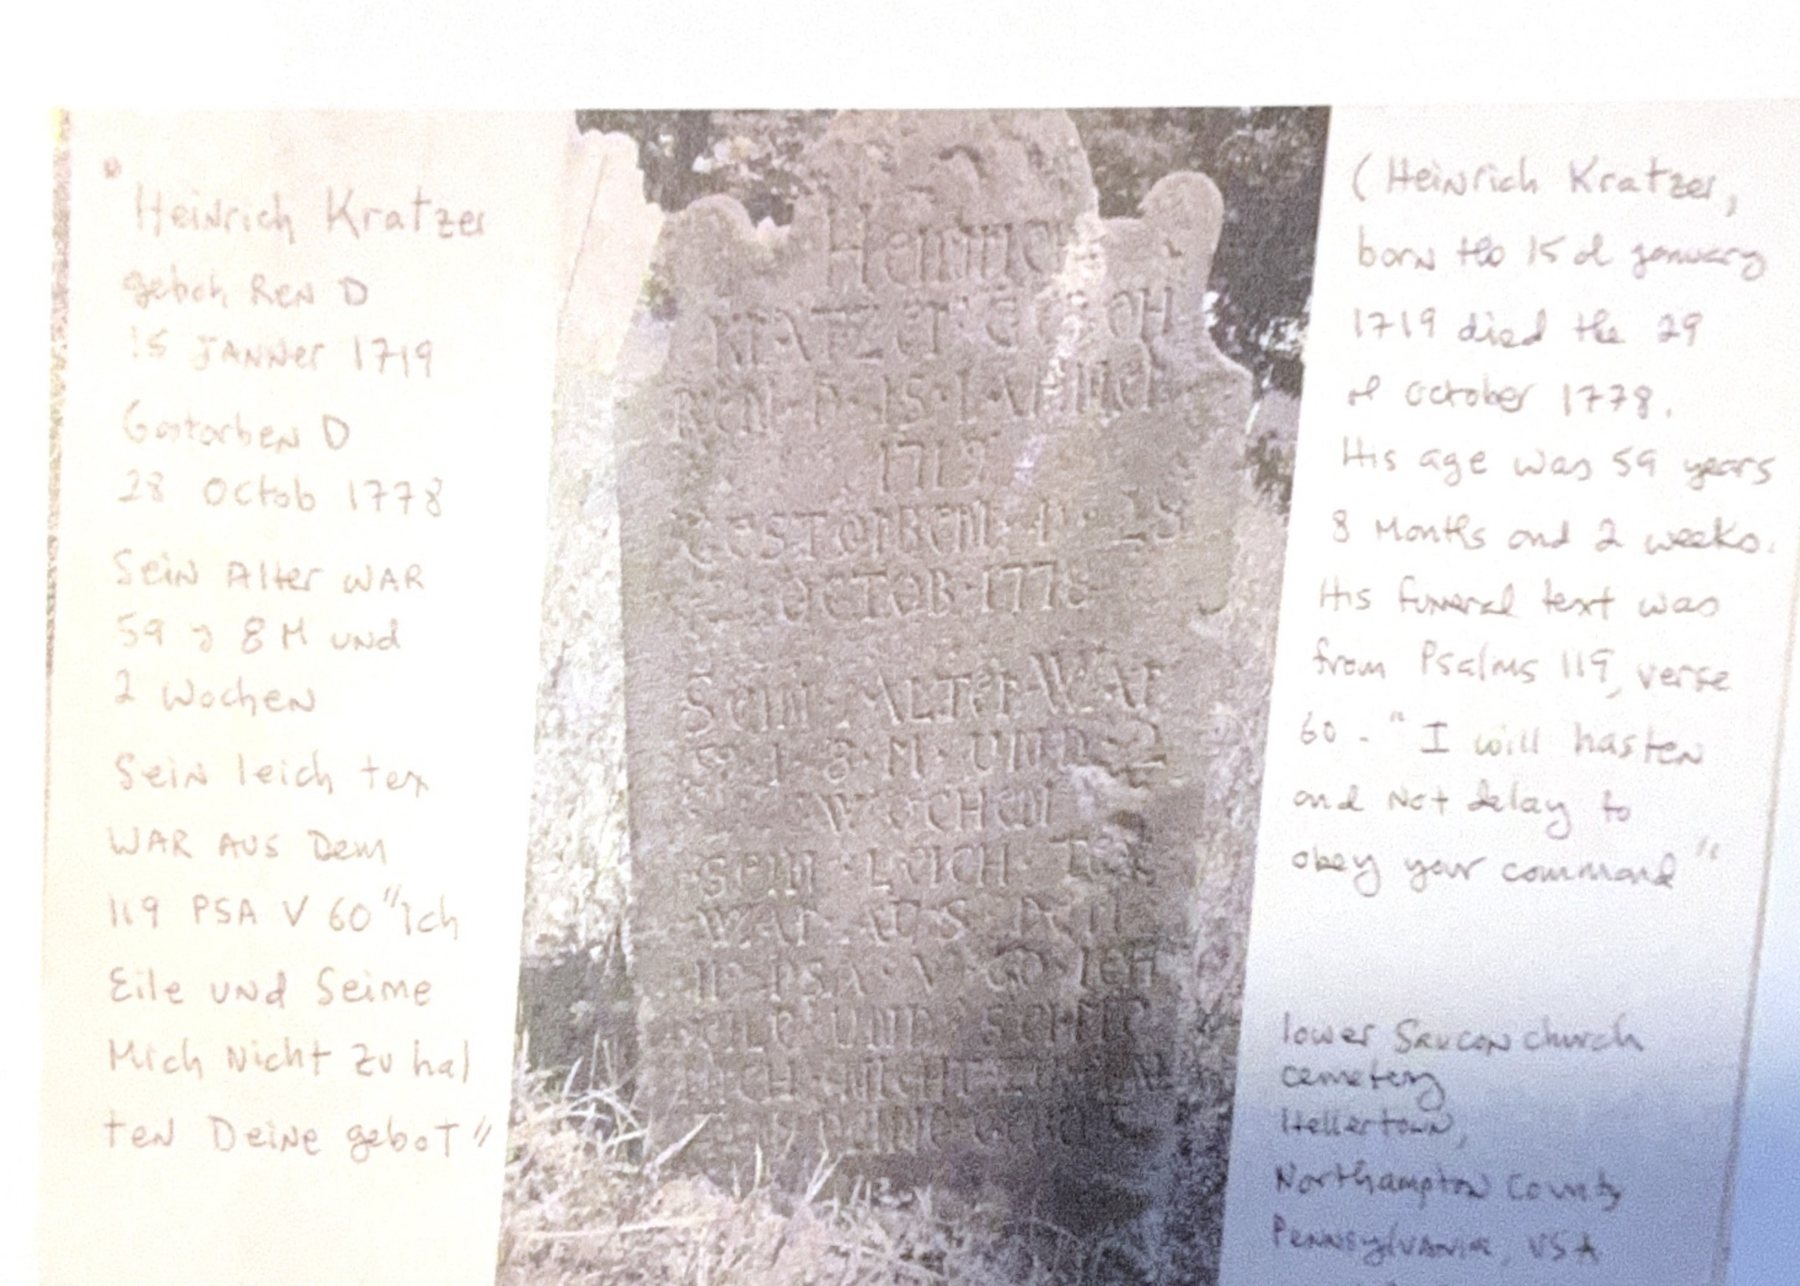 "
Heinrich Kratzer
geboh Ren D
15 JANNer 1719
Gestorben D
28 Octob 1778
Sein Alter WAR
59 J 8 M und
2 Wochen
Sein leich tex
WAR AUS Dem
119 PSA V 60 "Ich
Eile und Seime
Mich Nicht Zu hal
ten Deine gebot"
Heinrich
KRATZER GEBOH
REN D 15 IANNER
1719
GESTORBEN D 28
OCTOB 1778
SEIN ALTER WAR
59 I 8 M UND 2
WOCHEN
SEIN LEICH TEX
WAR AUS DEM
119 PSA V 60 ICH
EILE UND
MICH NICHT ZU HAL
DEINE GEBOT
(Heinrich Kratzer,
born the 15 of january
1719 died the 29
of October 1778.
His age was 59 years
8 Months and 2 weeks.
His funeral text was
from Psalms 119, verse
60 - "I will hasten
and Not delay to
obey your command"
lower Saucon church
cemetery
Hellertown,
Northampton County
Pennsylvania, USA